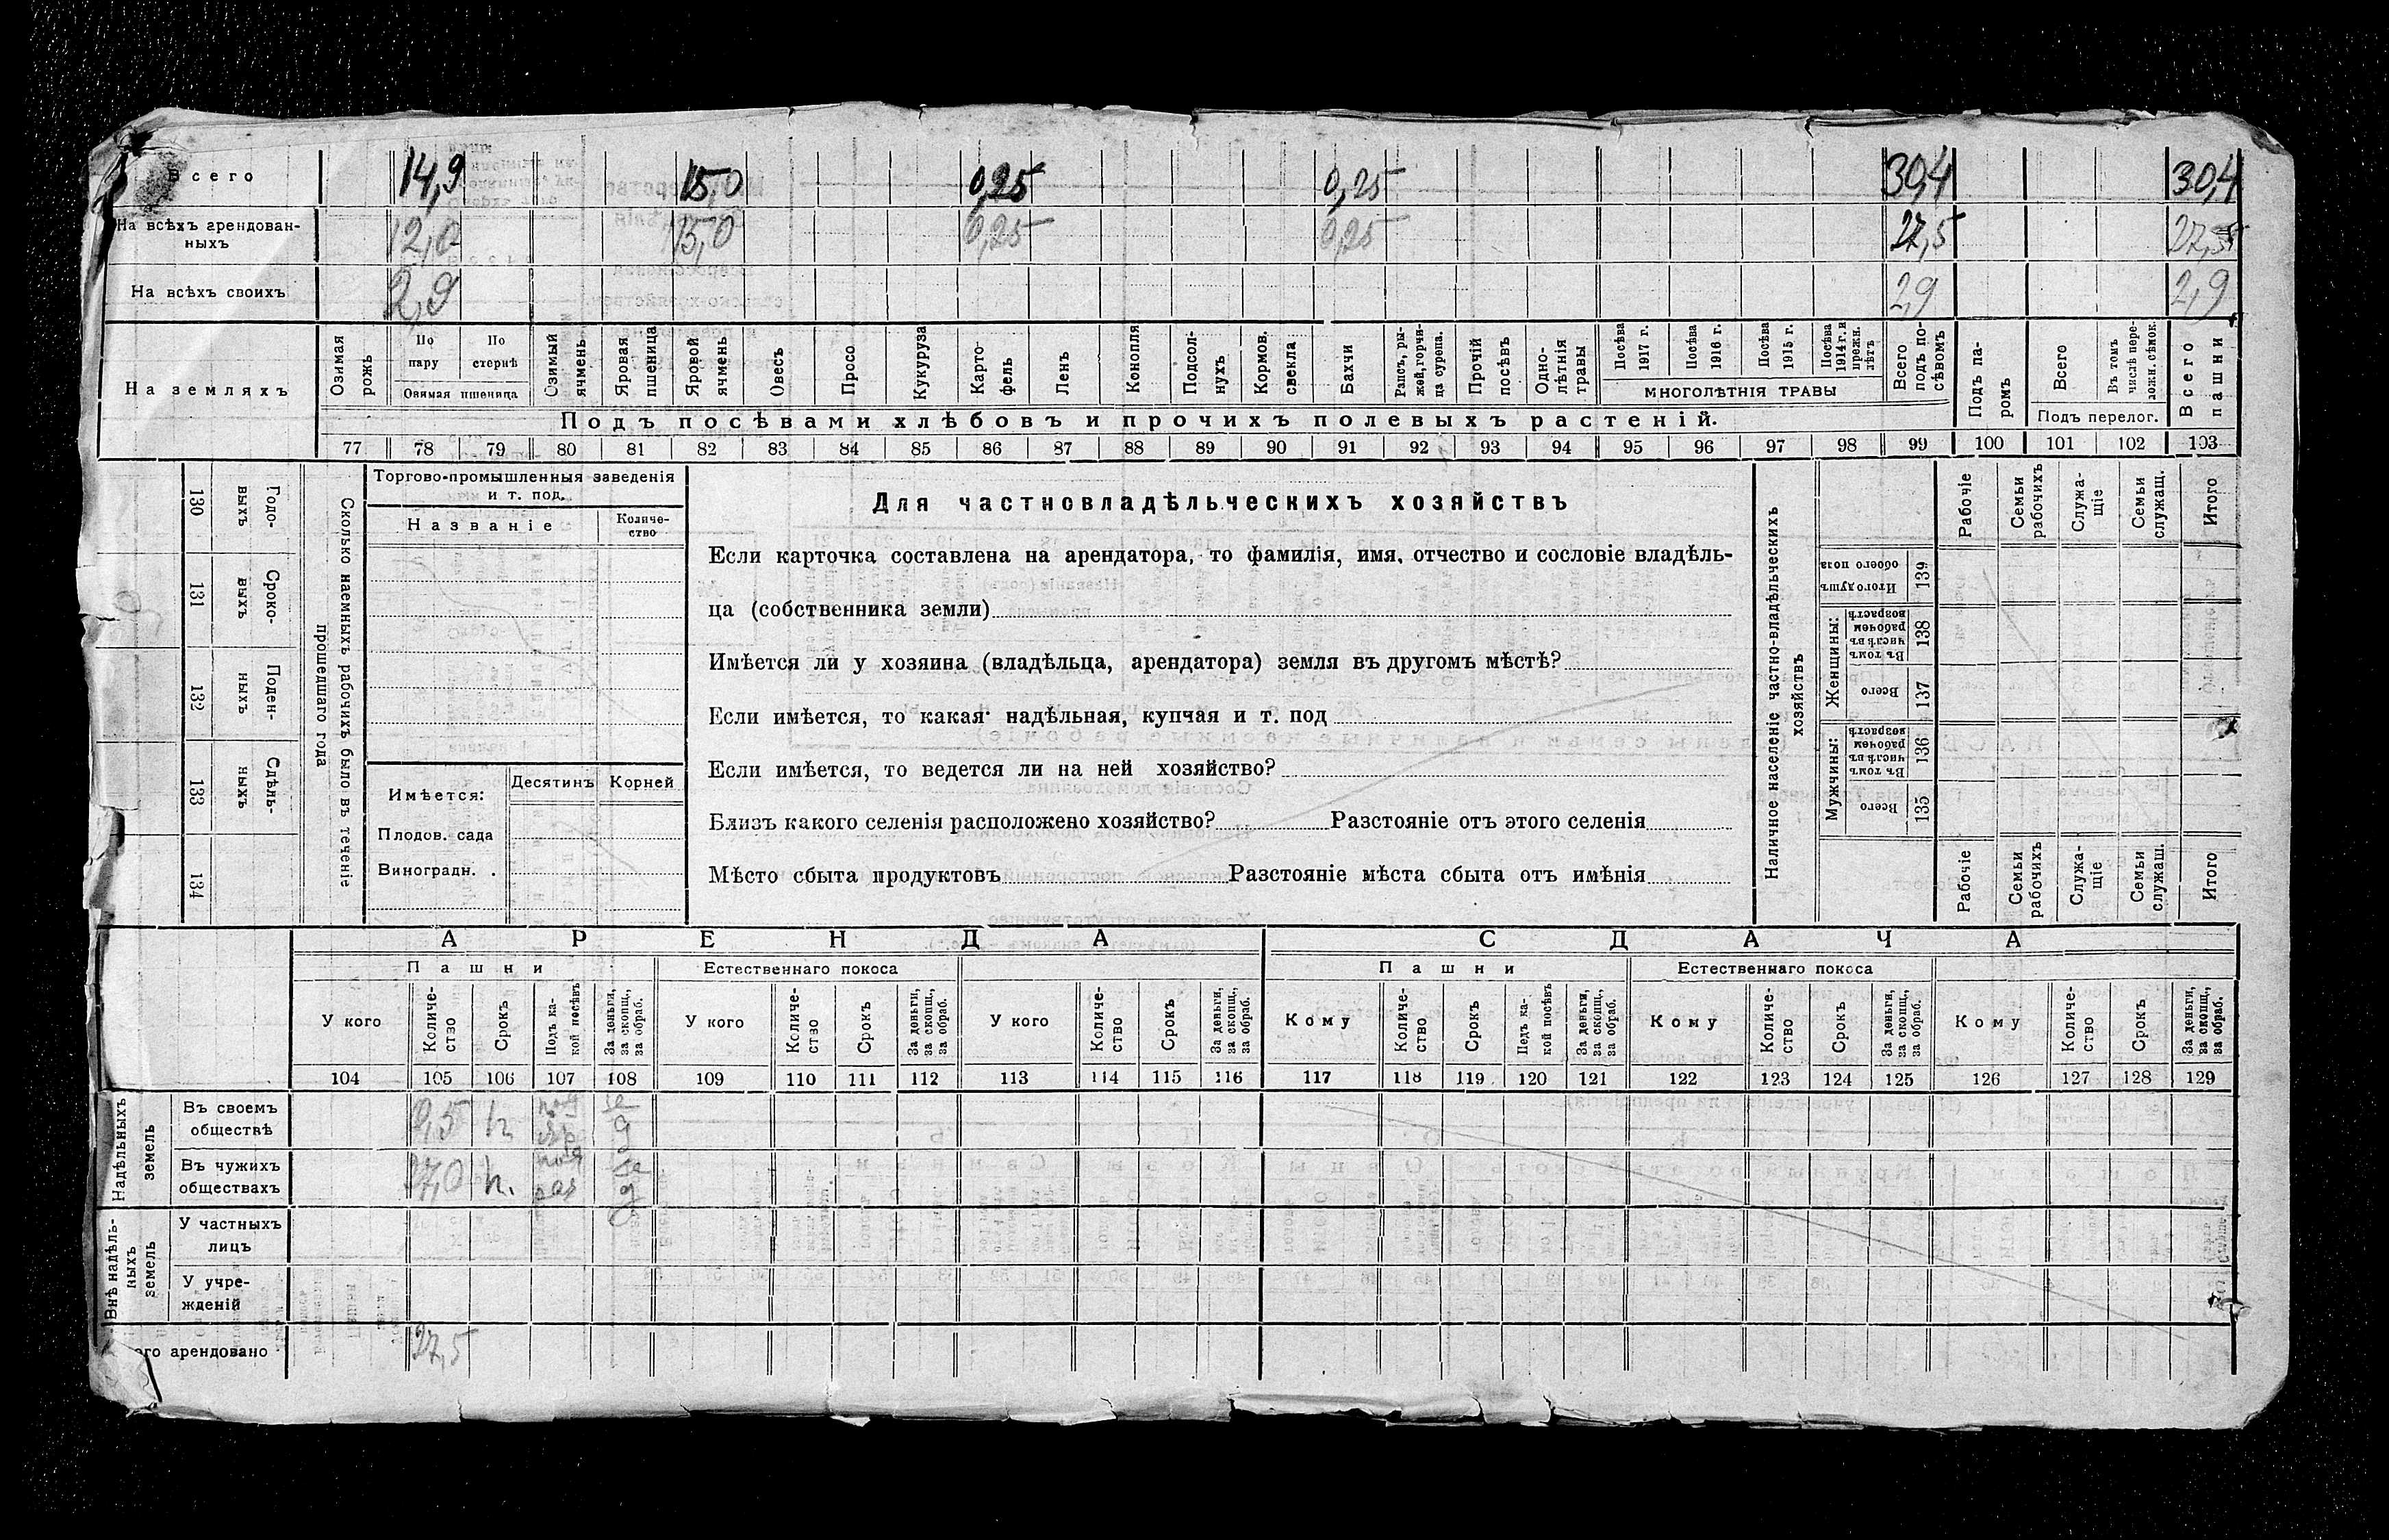 Всего 14,9 15,0 0,25 0,25 30,4 30,4
На всѣхъ арендован-
ныхъ 12,0 15,0 0,25 0,25 27,5 27,5
На всѣхъ своихъ 2,9 2,9 2,9
На земляхъ
Озимая рожь
По пару
По стернѣ
Озимая пшеница
Озимый ячмень
Яровая пшеница
Яровой ячмень
Овесъ
Просо
Кукуруза
Карто-
фель
Ленъ
Конопля
Подсол-
нухъ
Кормов.
свекла
Бахчи
Рапсъ, ры-
жей, горчи-
ца сурепа.
Прочій
посѣвъ
Одно-
лѣтнія
травы
Посѣва
1917 г.
Посѣва
1916 г.
Посѣва
1915 г.
Посѣва
1914 г. и
прежн.
лѣтъ
МНОГОЛѢТНІЯ ТРАВЫ
Всего
подъ по-
сѣвомъ
Подъ па-
ромъ
Всего
Въ томъ
числѣ пере-
ложн. сѣнок.
Подъ перелог.
Всего
пашни
Подъ посѣвами хлѣбовъ и прочихъ полевыхъ растеній.
77 78 79 80 81 82 83 84 85 86 87 88 89 90 91 92 93 94 95 96 97 98 99 100 101 102 103
Сколько наемныхъ рабочихъ было въ теченіе
прошедшаго года
Годо-
выхъ
130
Сроко-
выхъ
131
Поден-
ныхъ
132
Сдѣль-
ныхъ
133
134
Торгово-промышленныя заведенія
и т. под.
Названіе
Количе-
ство
Имѣется:
Десятинъ
Корней
Плодов. сада
Виноградн.
Для частновладѣльческихъ хозяйствъ
Если карточка составлена на арендатора, то фамилія, имя, отчество и сословіе владѣль-
ца (собственника земли)
Имѣется ли у хозяина (владѣльца, арендатора) земля въ другомъ мѣстѣ?
Если имѣется, то какая надѣльная, купчая и т. под
Если имѣется, то ведется ли на ней хозяйство?
Близъ какого селенія расположено хозяйство? Разстояніе отъ этого селенія
Мѣсто сбыта продуктовъ Разстояніе мѣста сбыта отъ имѣнія
Наличное населеніе частно-владѣльческихъ
хозяйствъ
Рабочіе
Семьи
рабочихъ
Служа-
щіе
Семьи
служащ.
Итого
Итого душъ
обоего пола
139
Женщины:
Въ томъ
числѣ въ
рабочемъ
возрастѣ
138
Всего
137
Мужчины:
Въ томъ
числѣ въ
рабочемъ
возрастѣ
136
Всего
135
Рабочіе
Семьи
рабочихъ
Служа-
щіе
Семьи
служащ.
Итого
АРЕНДА СДАЧА
Пашни Естественнаго покоса Пашни Естественнаго покоса
У кого
Количе-
ство
Срокъ
Подъ ка-
кой посѣвъ
За деньги,
за скопщ.,
за обраб.
У кого
Количе-
ство
Срокъ
За деньги,
за скопщ.,
за обраб.
У кого
Количе-
ство
Срокъ
За деньги,
за скопщ.,
за обраб.
Кому
Количе-
ство
Срокъ
Подъ ка-
кой посѣвъ
За деньги,
за скопщ.,
за обраб.
Кому
Количе-
ство
Срокъ
За деньги,
за скопщ.,
за обраб.
Кому
Количе-
ство
Срокъ
За деньги,
за скопщ.,
за обраб.
104 105 106 107 108 109 110 111 112 113 114 115 116 117 118 119 120 121 122 123 124 125 126 127 128 129
Надѣльныхъ
земель
Въ своемъ
обществѣ 0,5
Въ чужихъ
обществахъ 27,0
Внѣ надѣль-
ныхъ
земель
У частныхъ
лицъ
У учре-
жденій
ого арендовано 27,5